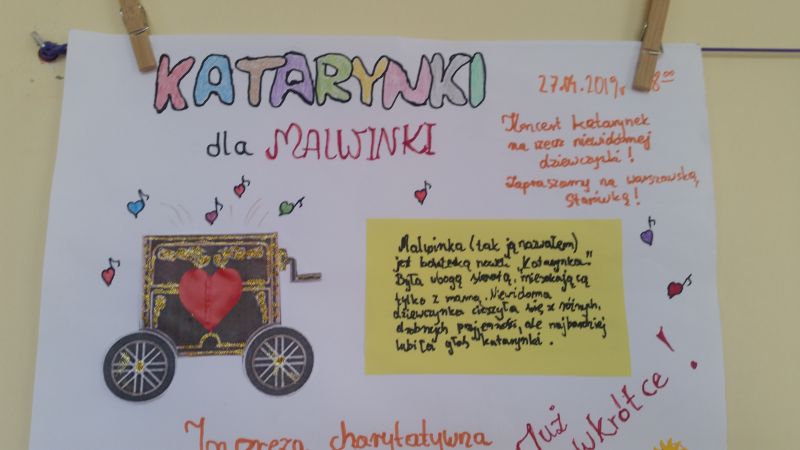 KATARYNKI
dla MALWINKI
27.04.2019r 8⁰⁰
Koncert katarynek
na rzecz niewidomej
dziewczynki!
Zapraszamy na warszawską
Starówkę!
Malwinka (tak ją nazwałem)
jest bohaterką noweli "Katarynka".
Była ubogą sierotą, mieszkającą
tylko z mamą. Niewidoma
dziewczynka cieszyła się z różnych,
drobnych przyjemności, ale najbardziej
lubiła głos katarynki.
Już
wkrótce!
Impreza charytatywna